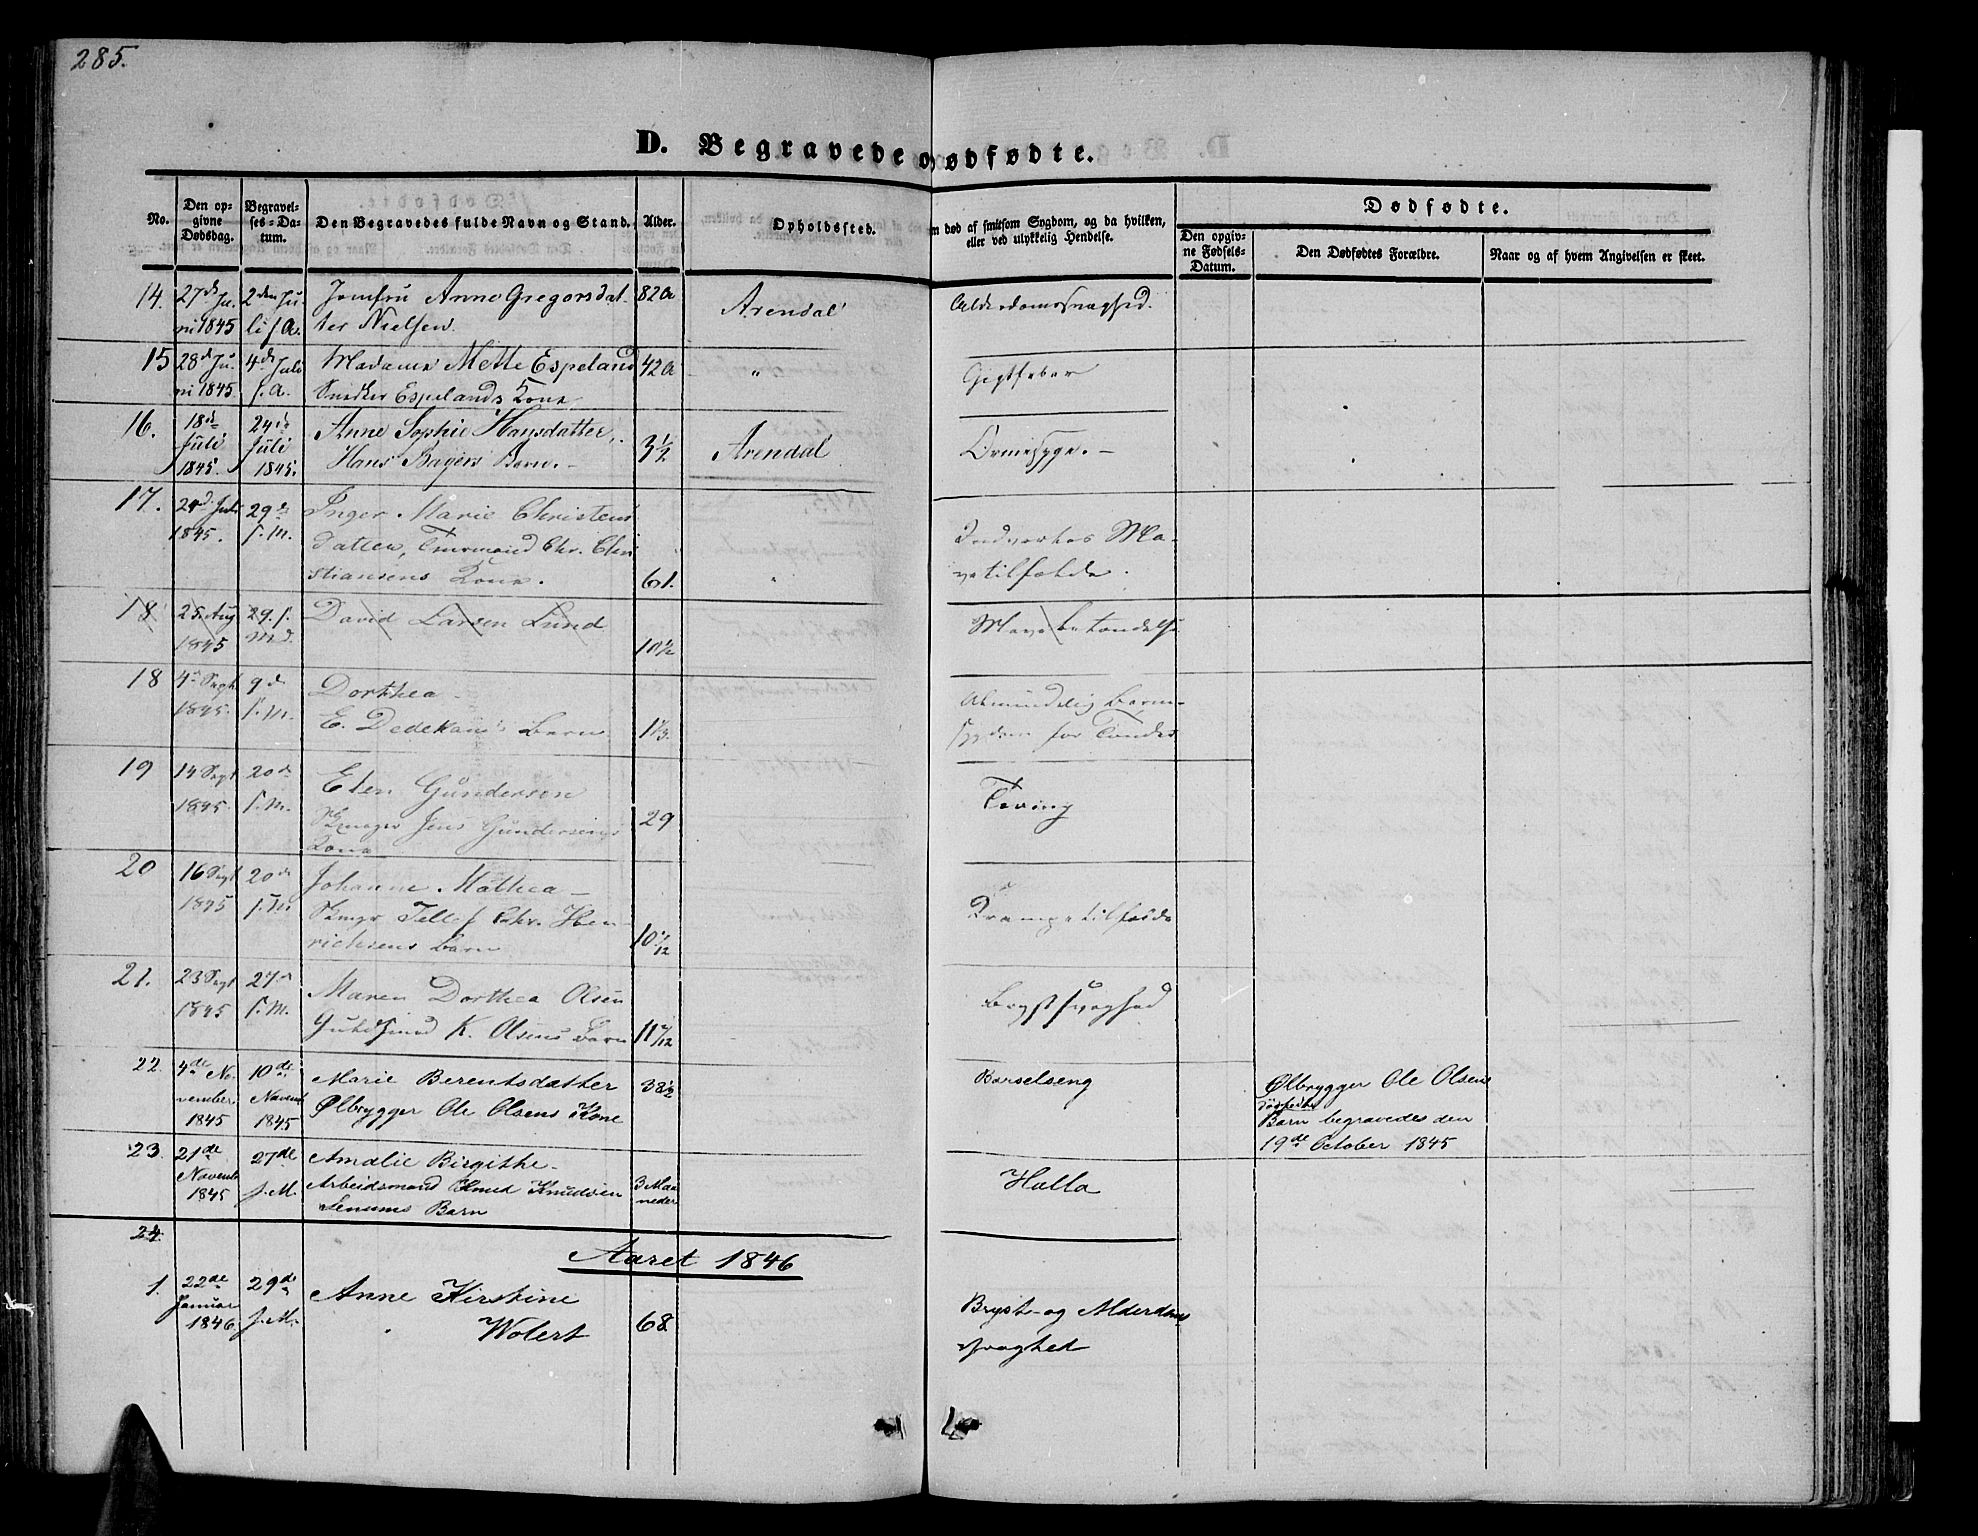 285.
D. Begravede o Dødfødte.
No.
Den opgivne Dødsdag.
Begravelses-Datum.
Den Begravedes fulde Navn og Stand.
Alder.
Opholdssted.
m død af smitsom Sygdom, og da hvilken,
eller ved ulykkelig Hendelse.
Dødfødte.
Den opgivne Fødsels-Datum.
Den Dødfødtes Forældre.
Naar og af hvem Angivelsen er skeet.
14. 27d Ju- 2den Ju- Jomfru Anne Gregorsdat- 82a Arendal Alderdomssvaghed.
ni 1845 li f. A. ter Nielsen.
15 28d Ju- 4de Juli Madame Mette Espeland 42a " Gigtfeber
ni 1845 f. A. Snedker Espelands Kone
16. 18de 24de Anne Sophie Hansdatter,
Juli Juli Hans Bagers Barn. - 3½ Arendal Ormesyge. -
1845. 1845.
17. 24d. Juli 29de Inger Marie Christens
1845. f. M. datter, Chr. Chri Indvortes Ma-
stiansens Kone. 61. " vetilfælde.
18 25. Aug 29. f. David Larsen Lund Mavebetændelse
1845 Md. 10½
18 4de Sept 9d Dorthea - Almindelig Barn-
1845. f. M. E. Dedekam's Barn 1⅓ sygdom for Tænder
19 14 Sept 20de Elen Gundersen Tæring
1845. f. M. Skipper Jens Gundersens 29
Kone
20 16 Sept 20de Johanne Mathea -
1845 f. M Tellef Chr. Hen- Krampetilfælde
richsens Barn 10 1/12
21. 23 Sept 27de Maren Dorthea Olsen Brystsvaghed
1845 f. M. Guldsmed K. Olsens Barn 11/12
22. 4de No- 10de Marie Berentsdatter 38½ Barselseng Ølbrygger Ole Olsens
vember Novemb Ølbrygger Ole Olsens Kone dødfødte
1845 1845 Barn begravedes den
19de October 1845
23. 21de 27de Amalie Birgithe - Halla
Novemb Arbeidsmand Knud Knudsen 3 Maa
1845 f. M. Senums Barn neder
24
Aaret 1846
1. 22de 29de Anne Kirstine Bryst- og Alderdoms
Januar
1846. f. M. Wolert 68. svaghed